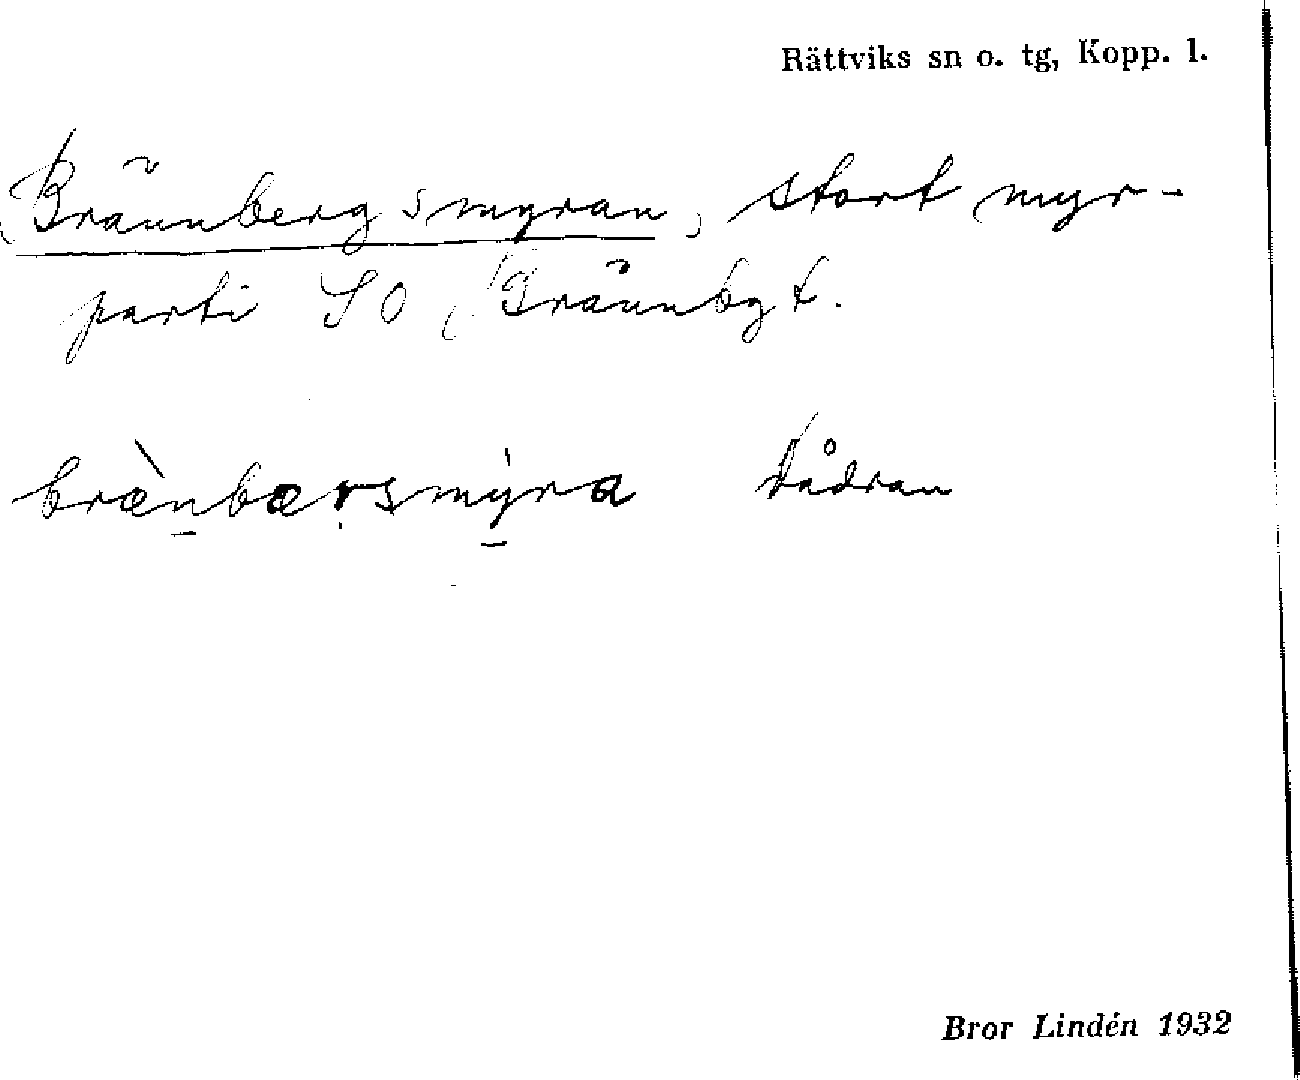 Rättviks sn o. tg, Kopp. l.
Brännbergsmyran, stort myr-
parti SO Brännbgt.
bræ̀nbærsmýra Dådran
Bror Lindén 1932